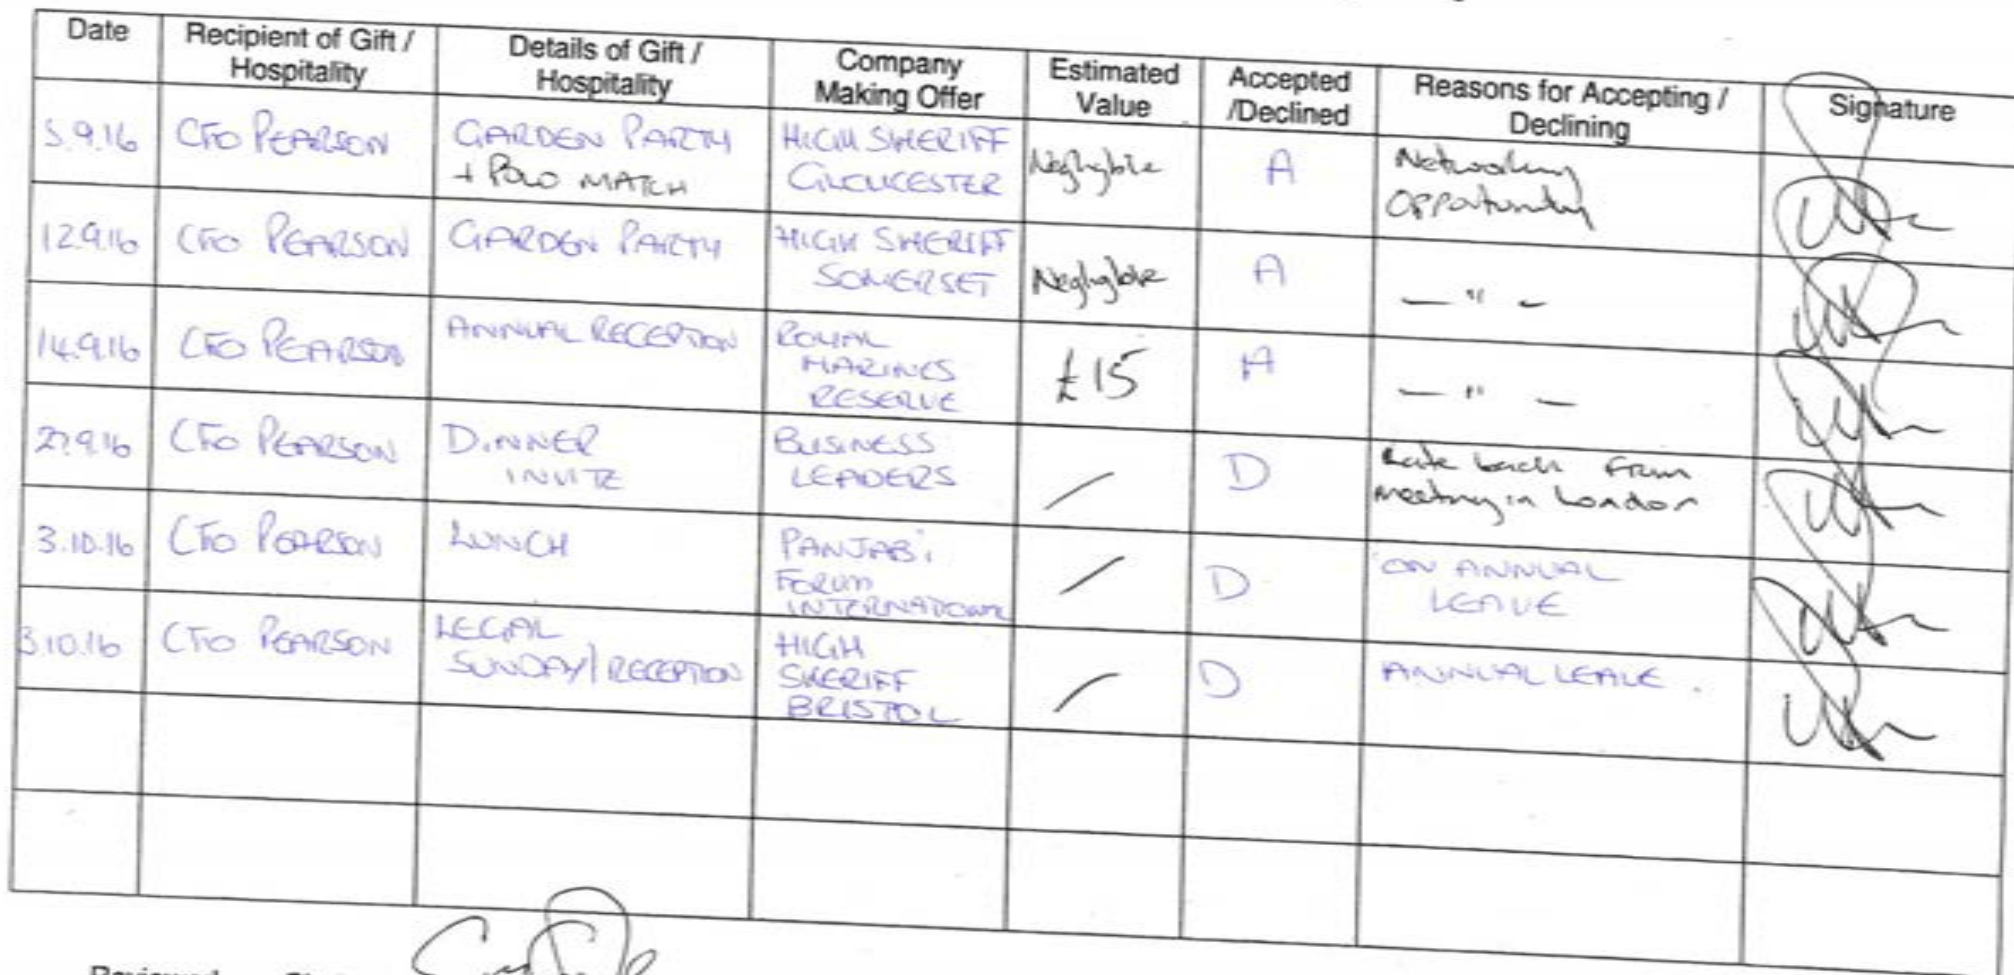 Date
Recipient of Gift /
Hospitality
Details of Gift /
Hospitality
Company
Making Offer
Estimated
Value
Accepted
/Declined
Reasons for Accepting /
Declining
Signature
5.9.16
CFO PEARSON
GARDEN PARTY
+ POLO MATCH
HIGH SHERIFF
GLOUCESTER
Negligible
A
Networking
Opportunity
12.9.16
CFO PEARSON
GARDEN PARTY
HIGH SHERIFF
SOMERSET
Negligible
A
— " —
14.9.16
CFO PEARSON
ANNUAL RECEPTION
ROYAL
MARINES
RESERVE
£15
A
— " —
27.9.16
CFO PEARSON
DINNER
INVITE
BUSINESS
LEADERS
/
D
Late back from
meeting in London
3.10.16
CFO PEARSON
LUNCH
PANJABI
FORUM
INTERNATIONAL
/
D
ON ANNUAL
LEAVE
3.10.16
CFO PEARSON
LEGAL
SUNDAY/RECEPTION
HIGH
SHERIFF
BRISTOL
/
D
ANNUAL LEAVE.
Reviewed